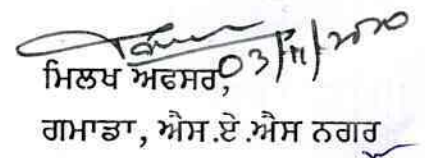 03/11/2020
ਮਿਲਖ ਅਫਸਰ,
ਗਮਾਡਾ, ਐਸ.ਏ.ਐਸ ਨਗਰ